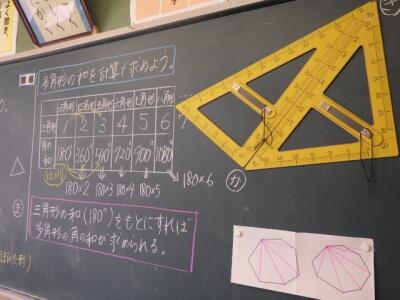 多角形の和を計算で求めよう。
三角形 四角形 五角形 六角形 七角形 八角形
三角形 1 2 3 4 5 6 7
角の和 180° 360° 540° 720° 900° 1080°
180×2 180×3 180×4 180×5 180×6
か
ま
三角形の和(180°)をもとにすれば
多角形の角の和が求められる。